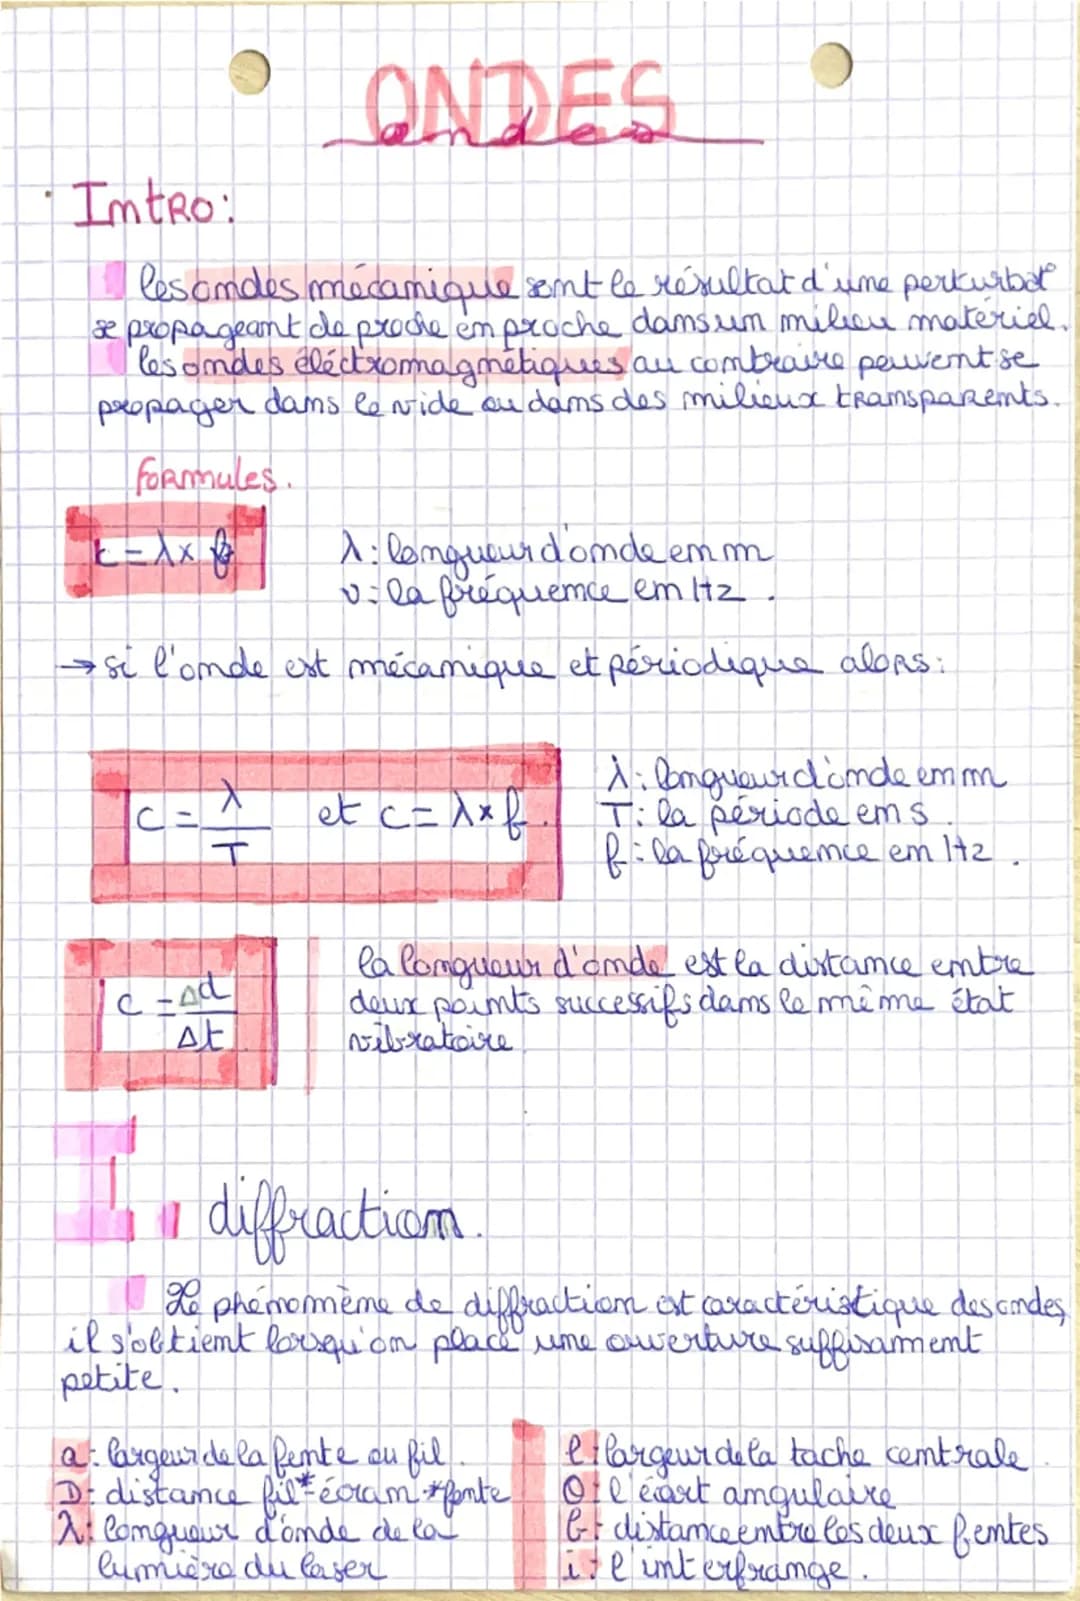 ONDES
ondes
Intro:
les ondes mécanique sont le résultat d'une perturbat°
se propageant de proche en proche dans un milieu matériel.
les ondes éléctromagnétiques au contraire peuvent se
propager dans le vide ou dans des milieux transparents.
formules.
c = λ × f
λ : longueur d'onde en m
ν : la fréquence en Hz.
→ si l'onde est mécanique et périodique alors:
c = λ/T et c = λ × f.
λ : longueur d'onde en m
T : la période en s.
f : la fréquence en Hz.
c = Δd/Δt
la longueur d'onde est la distance entre
deux points successifs dans le même état
vibratoire
I. diffraction.
Le phénomème de diffraction est caractéristique des ondes,
il s'obtient lorsqu'on place une ouverture suffisamment
petite.
a : largeur de la fente ou fil.
D : distance fil*-écran. *fente
λ : longueur d'onde de la
lumière du laser
l : largeur de la tache centrale.
θ : l'écart angulaire
b : distance entre les deux fentes
i : l'interfrange.